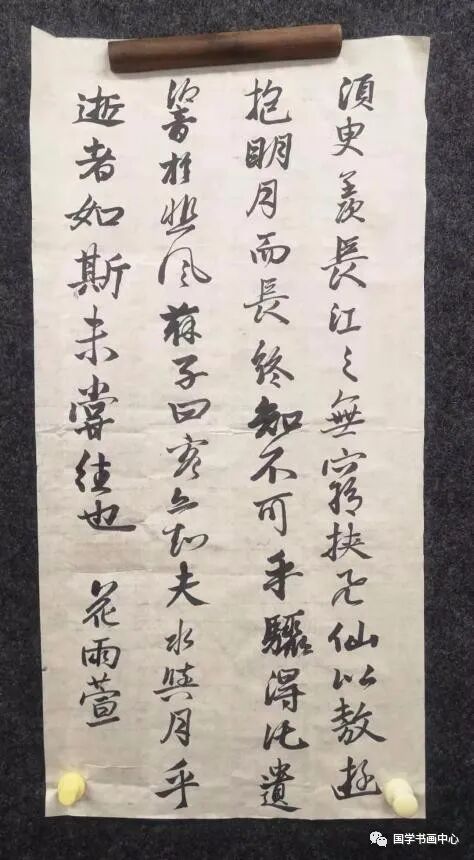 須臾羨長江之無窮挾飛仙以敖遊
抱明月而長終知不可乎驟得託遺
響於悲風蘇子曰客亦知夫水與月乎
逝者如斯未嘗往也 花雨萱
国学书画中心